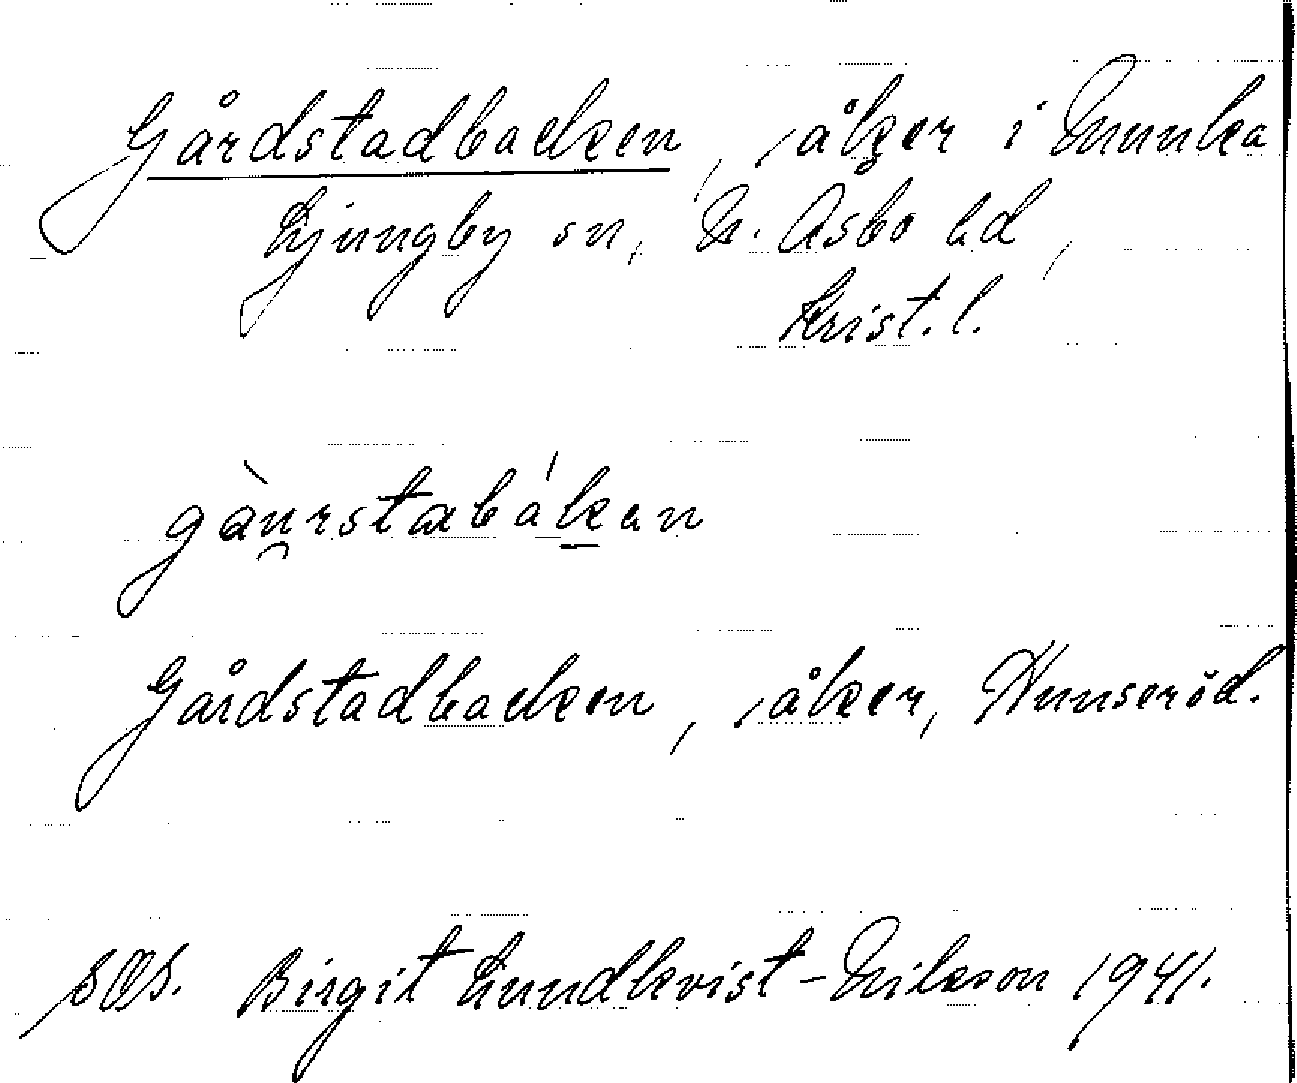 Gårdstadbacken, åker i Munka
Ljungby sn, N. Åsbo hd,
Krist. l.
gàu̯rstabákan
Gårdstadbacken, åker, Hunseröd.
SOS. Birgit Lundkvist-Nilsson 1941.